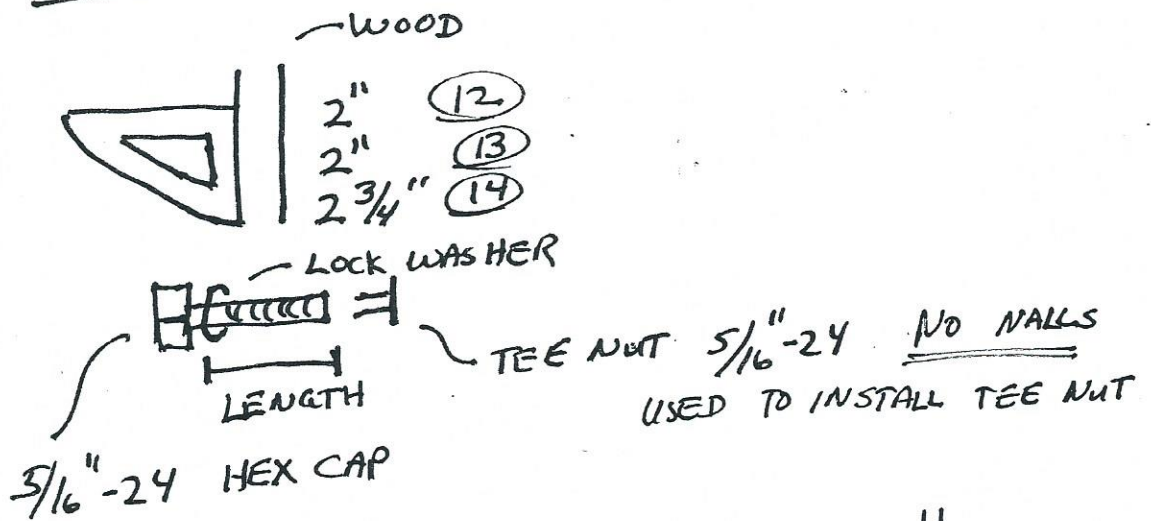 WOOD
2" 12
2" 13
2 3/4" 14
LOCK WASHER
TEE NUT 5/16"-24 NO NALLS
USED TO INSTALL TEE NUT
LENGTH
5/16"-24 HEX CAP